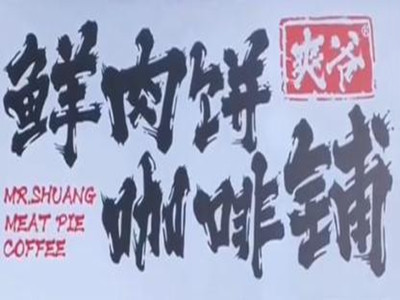 鲜肉饼
爽爷®
咖啡铺
MR.SHUANG
MEAT PIE
COFFEE